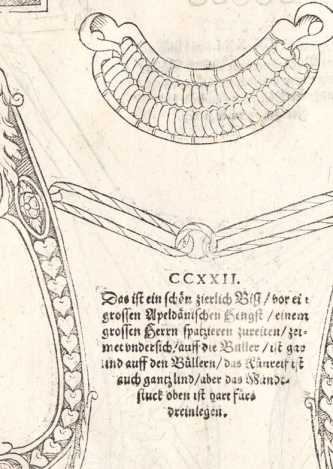 CCXXII.
Das ist ein schön zierlich Biß / vor ei
grossen Apeldänischen Hengst / einem
grossen Herrn spatzieren zureiten / zei-
met vndersich / auff die Büller / ist gar
lind auff den Büllern / das Künreiff ist
auch gantz lind / aber das Mundt-
stuck oben ist hart fürs
dreinlegen.